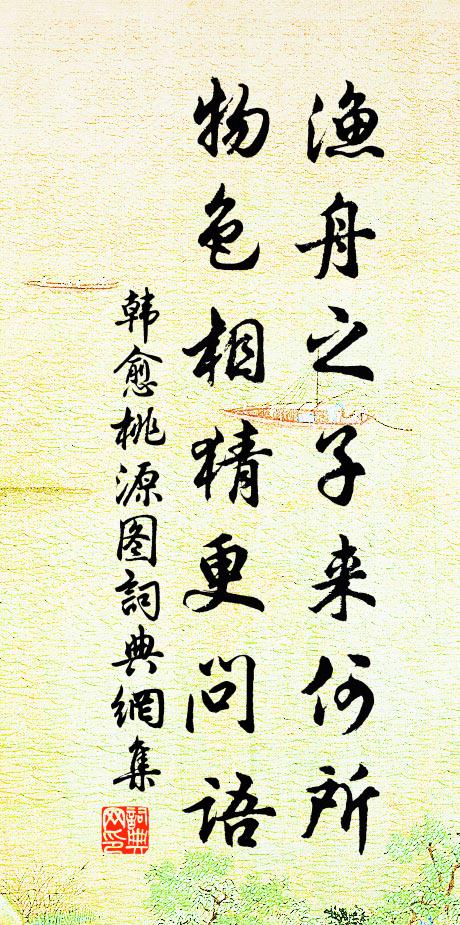 渔舟之子来何所
物色相猜更问语
韩愈桃源图詞典網集
詞典
网印